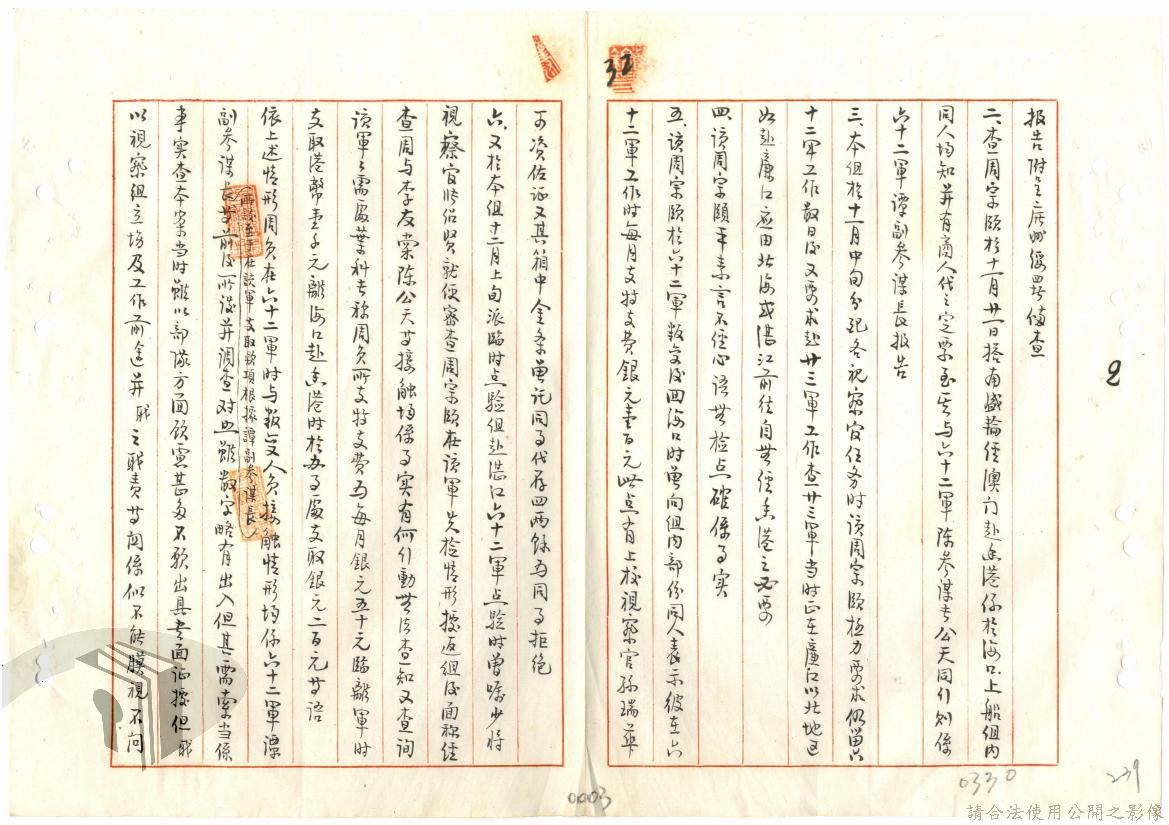 32
2
報告附呈 備查
二、查周字頤於十一月廿一日搭南盛輪經澳门赴香港係於海口上船組内
同人均知并有商人代之定票至其与六十二軍陳参謀長公天同行則係
六十二軍譚副参謀長報告
三、本組於十一月中旬分配各視察官任务时该周字頤极力要求仍留六
十二軍工作数日後又要求赴廿三軍工作查廿三軍当时正在廉江以北地区
如赴廉江应由北海或湛江前往自無經香港之必要
四、该周字頤平素言不經心语無检点確係事实
五、该周字頤於六十二軍叛变後回海口时曾向組内部份同人表示彼在六
十二軍工作时每月支特支費銀元壹百元此点有上校視察官孫瑞華
可资佐证又其箱中金条曾託同事代存四两餘为同事拒绝
六、又於本組十二月上旬派临时点验組赴湛江六十二軍点验时曾嘱少将
視察官 绍賢就便審查周字頤在该軍 检情形據返組後面称经
查周与李友棠陳公天等接触均係事实有何行動無法查知又查询
该軍軍需處葉科長称周员所支特支費为每月銀元五十元临離軍时
支取港幣壹千元離海口赴香港时於办事處支取銀元二百元等语
依上述情形周员在六十二軍时与叛变人员接触情形均係六十二軍譚
副参謀長等前後所談（所談至于在该軍支取款項根據譚副参謀長）并調查对照雖数字略有出入但其需索当係
事实查本案当时雖以部隊方面顾慮甚多不願出具書面证據但職
以視察組立场及工作前途并職之職责等関係似不能膜視不问
0003
0330
239
請合法使用公開之影像